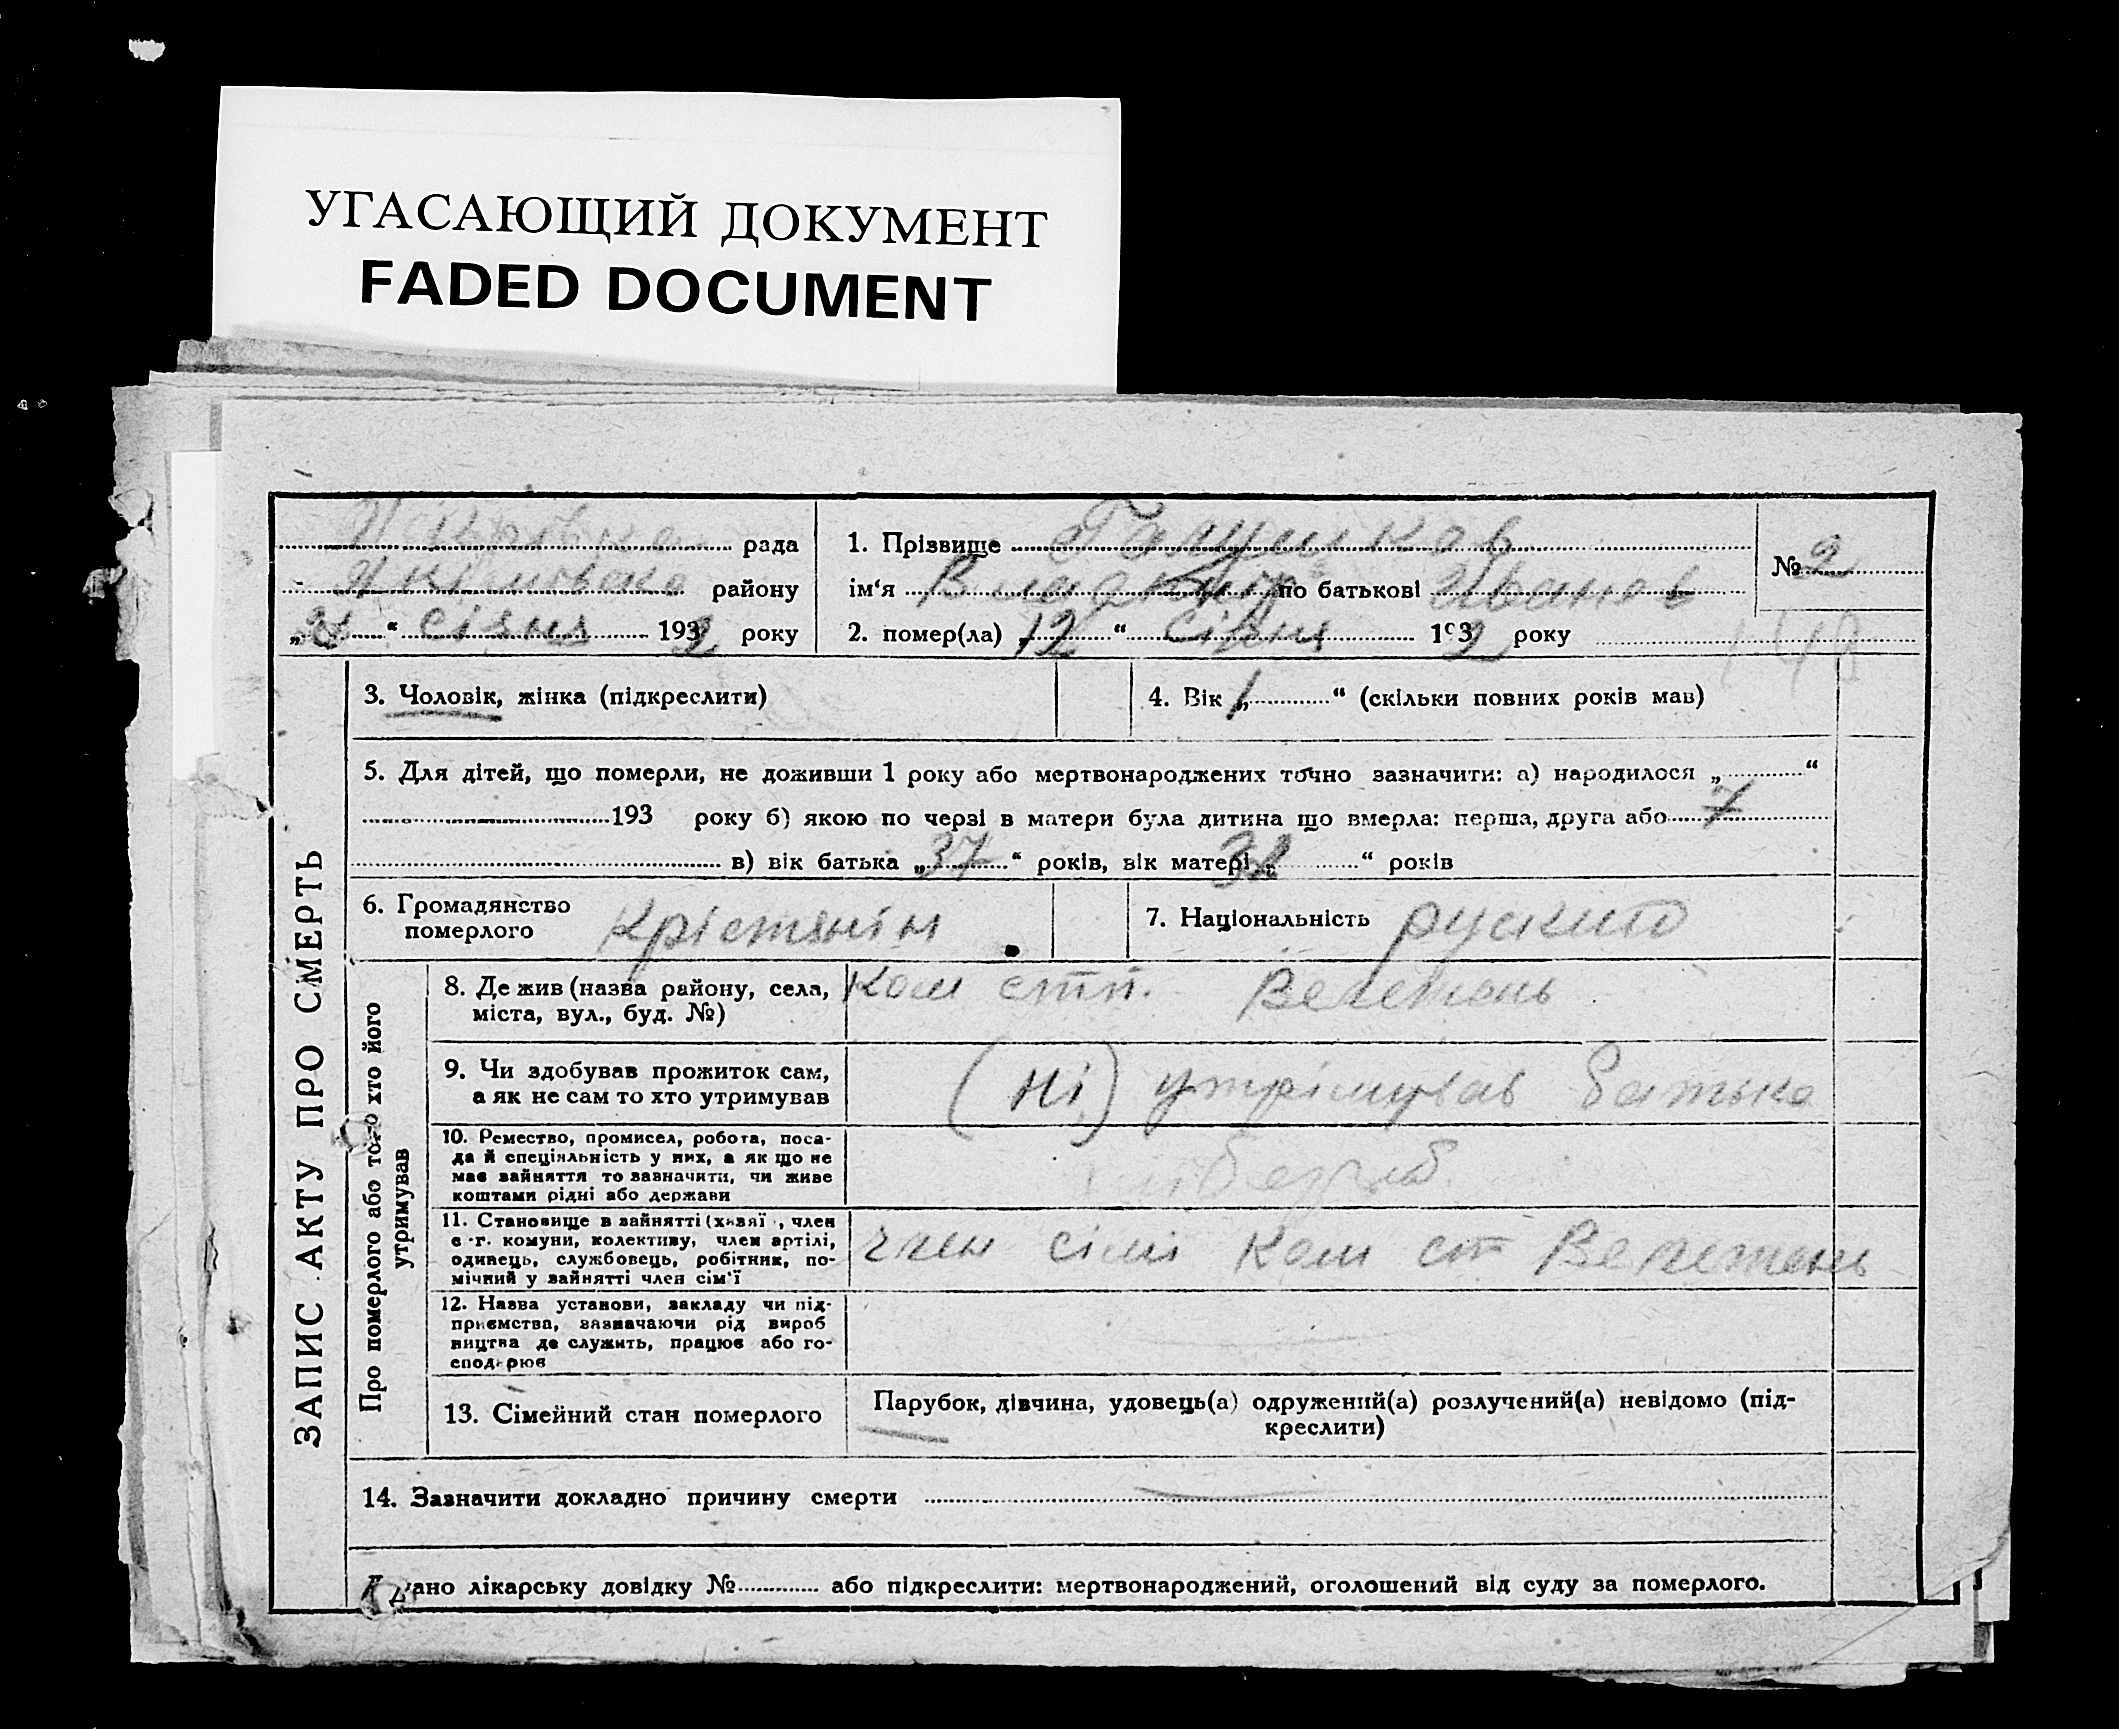 УГАСАЮЩИЙ ДОКУМЕНТ
FADED DOCUMENT
рада
району
" сівня 1932 року
1. Прізвище Галушков
ім'я Владімір по батькові Іванов
2. помер(ла) „12" сівня 1932 року
№ 2
148
ЗАПИС АКТУ ПРО СМЕРТЬ
3. Чоловік, жінка (підкреслити)
4. Вік „1" (скільки повних років мав)
5. Для дітей, що померли, не доживши 1 року або мертвонароджених точно зазначити: а) народилося „ "
193 року б) якою по черзі в матери була дитина що вмерла: перша, друга або 7
в) вік батька „37" років, вік матері „ " років
6. Громадянство
померлого
Крістянін
7. Національність
рускит
Про померлого або того хто його
утримував
8. Де жив (назва району, села,
міста, вул., буд. №)
Ком стп.
9. Чи здобував прожиток сам,
а як не сам то хто утримував
(ні) утрімував батько
10. Ремество, промисел, робота, поса-
да й спеціяльність у них, а як що не
має зайняття то зазначити, чи живе
коштами рідні або держави
11. Становище в зайнятті (хазяї, член
с.-г. комуни, колективу, член артілі,
одинець, службовець, робітник, по-
мічний у зайнятті член сім'ї
член сімі Ком ст
12. Назва установи, закладу чи під-
приємства, зазначаючи рід вироб
ництва де служить, працює або го-
сподарює
13. Сімейний стан померлого
Парубок, дівчина, удовець(а) одружений(а) розлучений(а) невідомо (під-
креслити)
14. Зазначити докладно причину смерти
Додано лікарську довідку № або підкреслити: мертвонароджений, оголошений від суду за померлого.